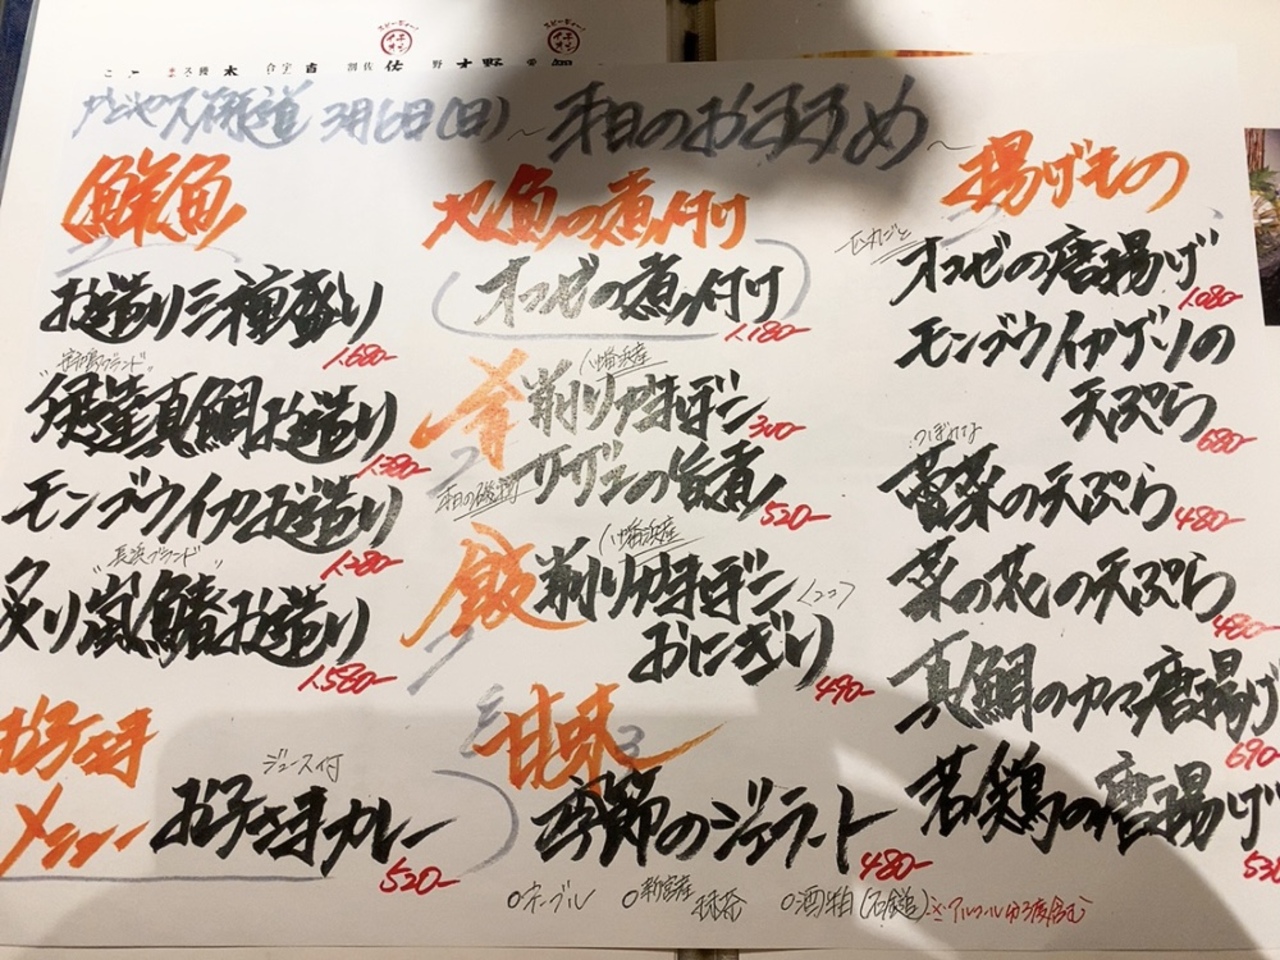 3月6日(日) ~本日のおすすめ~
鮮魚
お造り三種盛り
1.680-
"宇和島ブランド"
伊達真鯛お造り
1.380-
モンゴウイカお造り
1.280-
"長浜ブランド"
炙り嵐鰆お造り
1.580-
お子さま
メニュー
ジュース付
お子さまカレー
520-
地魚の煮付け
オコゼの煮付け
1.180-
八幡浜産
削りかまぼこ
300-
本日の磯物
サザエの旨煮
520-
飯
八幡浜産
削りかまぼこ
(2コ)
おにぎり
490-
甘味
季節のジェラート
480-
○ネーブル ○新宮産抹茶 ○酒粕(石鎚) ※アルコール分3度含む
揚げもの
丸ごと
オコゼの唐揚げ
1.080-
モンゴウイカゲソの
天ぷら
680-
つぼみな
蕾菜の天ぷら
480-
菜の花の天ぷら
480-
真鯛のカマ唐揚げ
690-
若鶏の唐揚げ
530